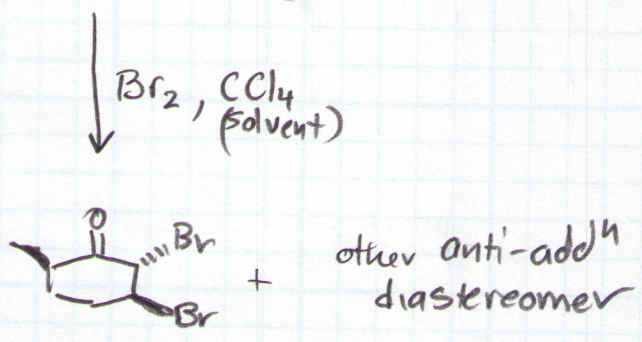 Br2, CCl4
(solvent)
O
Br
Br
+
other anti-addn
diastereomer